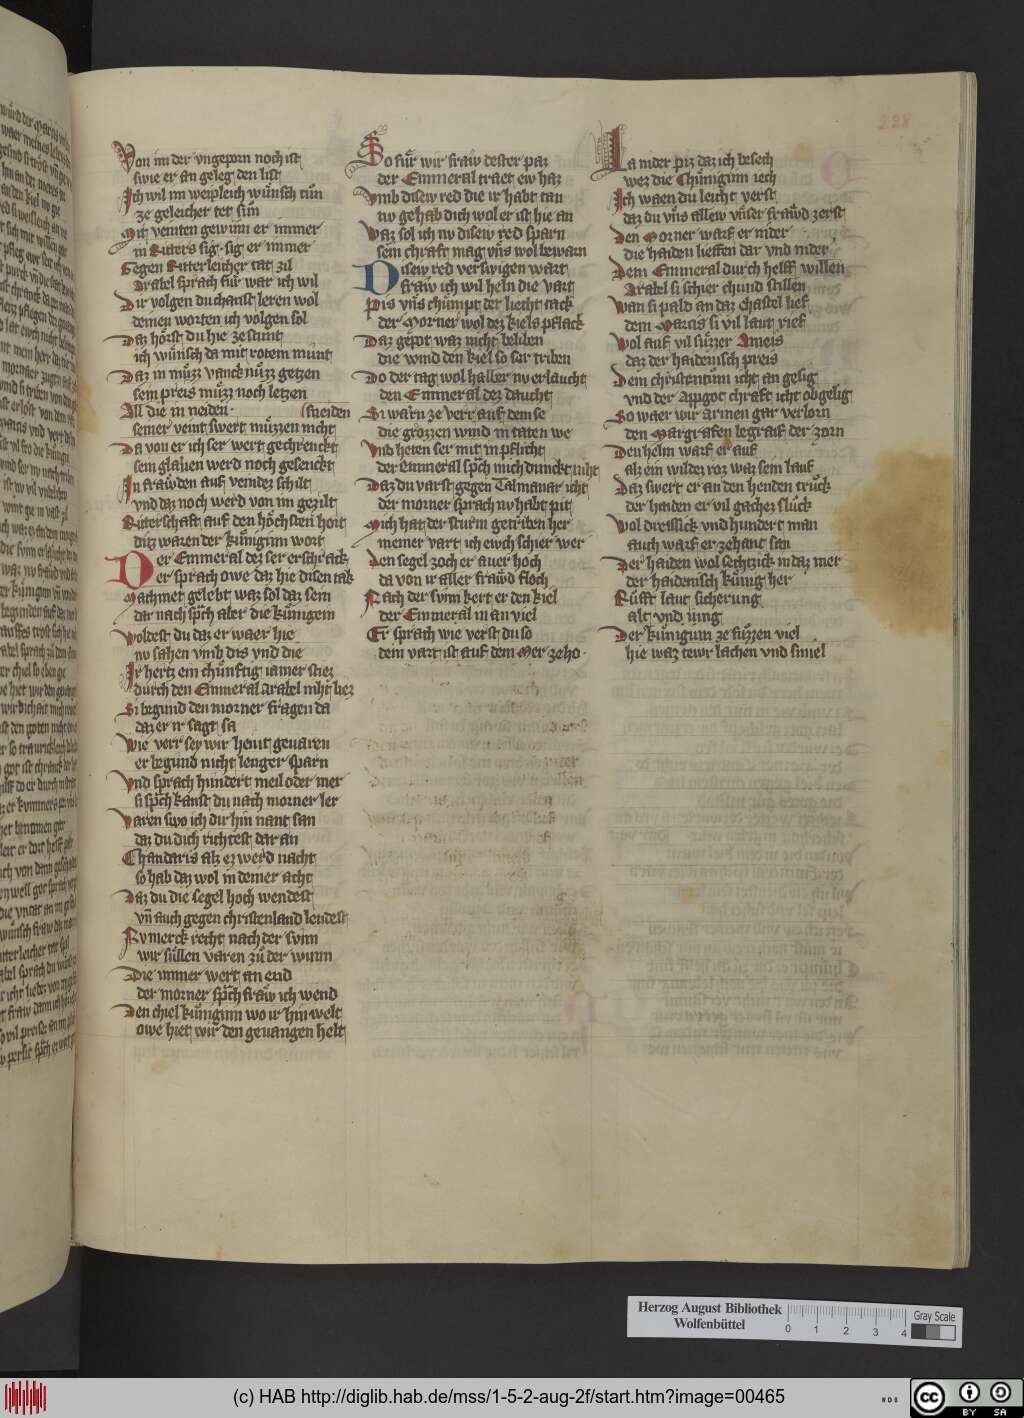 228
Von im der vngeporn noch ist
swie er an geleg den list
Ich wil im weipleich wünsch tün
ze geleicher tet sün
Mit veinten gewinn er immer
in Ritters sig sig er immer
Gegen Ritterleicher tat zil
Arabel sprach für war ich wil
Dir volgen du chanst leren wol
deinen worten ich volgen sol
Daz hörst du hie ze stunt
ich wünsch da mit rotem munt
Daz in müzz vanck nüzz getzen
sein preis müzz noch letzen
All die in neiden
sneiden
seiner veint swert müzzen nicht
Da von er ich ser wert gechrenckt
sein glauen werd noch gesenckt
In frawden auf veindez schilt
vnd daz noch werd von im gezilt
Ritterschaft auf den höchsten hort
ditz waren der künginn wort
Der Emmeral dez ser erschrack
er sprach owe daz hie disen tak
Machmet gelebt waz sol daz sein
dar nach spͣch aber die künigein
Woldest du daz er waer hie
nv sahen vmb dis vnd die
Ir hertz ein chünftig iamer stiez
durch den Emmeral Arabel niht liez
Si begund den morner fragen da
daz er ir sagt sa
Wie verr sey wir heint geuaren
er begund nicht lenger sparn
Vnd sprach hundert meil oder mer
si spͣch kanst du nach morner ler
Varen swo ich dir hin nant san
daz du dich richtest dar an
Chandaris alz ez werd nacht
so hab daz wol in deiner acht
Daz du die segel hoch wendest
vn̄ auch gegen christenland lendest
Nv merck recht nach der synn
wir süllen varen zů der winn
Die immer wert an end
der morner spͣch fraw ich wend
Den chiel künginn wo ir hin welt
owe hiet wir den geuangen helt
So für wir fraw dester paz
der Emmeral traet ew haz
Vmb disew red die ir habt tan
nv gehab dich wol er ist hie an
Waz sol ich nv disew red sparn
sein chraft mag vns wol bewarn
Disew red verswigen wart
fraw ich wil heln die vart
Pis vns chümpt der liecht tack
der Morner wol dez kiels pflack
Daz gepot waz nicht beliben
die wind den kiel so ser triben
Do der tag wol halber nv erlaucht
den Emmeral dez daucht
Si warn ze verr auf dem se
die grozzen wind in taten we
Vnd heten ser mit in pflicht
der Emmeral spͣch mich dunckt niht
Daz du varst gegen Talmanar icht
der morner sprach nv habt pit
Mich hat der sturm getriben her
meiner vart ich ewch schier wer
Den segel zoch er auer hoch
da von ir aller frawd floch
Nach der synn kert er den kiel
der Emmeral in an viel
Er sprach wie verst du so
dein vart ist auf dem Mer ze ho
La nider piz daz ich besech
wez die Chünginn iech
Ich waen du leicht verst
daz du vns allew vnser frawd zerst
Den Morner warf er nider
die haiden lieffen dar vnd nider
Dem Emmeral durch helff willen
Arabel si schier chund stillen
Wan si pald an daz chastel lief
dem Marcis si vil laut rief
Wol auf vil süzzer Ameis
daz der haidenisch preis
Dem christentům icht an gesig
vnd der Appgot chraft icht obgelig
So waer wir armen gar verlorn
den Margrafen begraif der zorn
Den helm warf er auf
alz ein wildez roz waz sein lauf
Daz swert er an den henden trück
der haiden er vil gachez slück
Wol dreissick vnd hundert man
auch warf er zehant san
Der haiden wol sechtzick in daz mer
der haidenisch künig her
Rüfft laut sicherung
alt vnd iung
Der künginn ze füzzen viel
hie waz tewr lachen vnd smiel
Herzog August Bibliothek
Wolfenbüttel
0 1 2 3 4
Gray Scale
(c) HAB http://diglib.hab.de/mss/1-5-2-aug-2f/start.htm?image=00465
WDB
CC BY SA